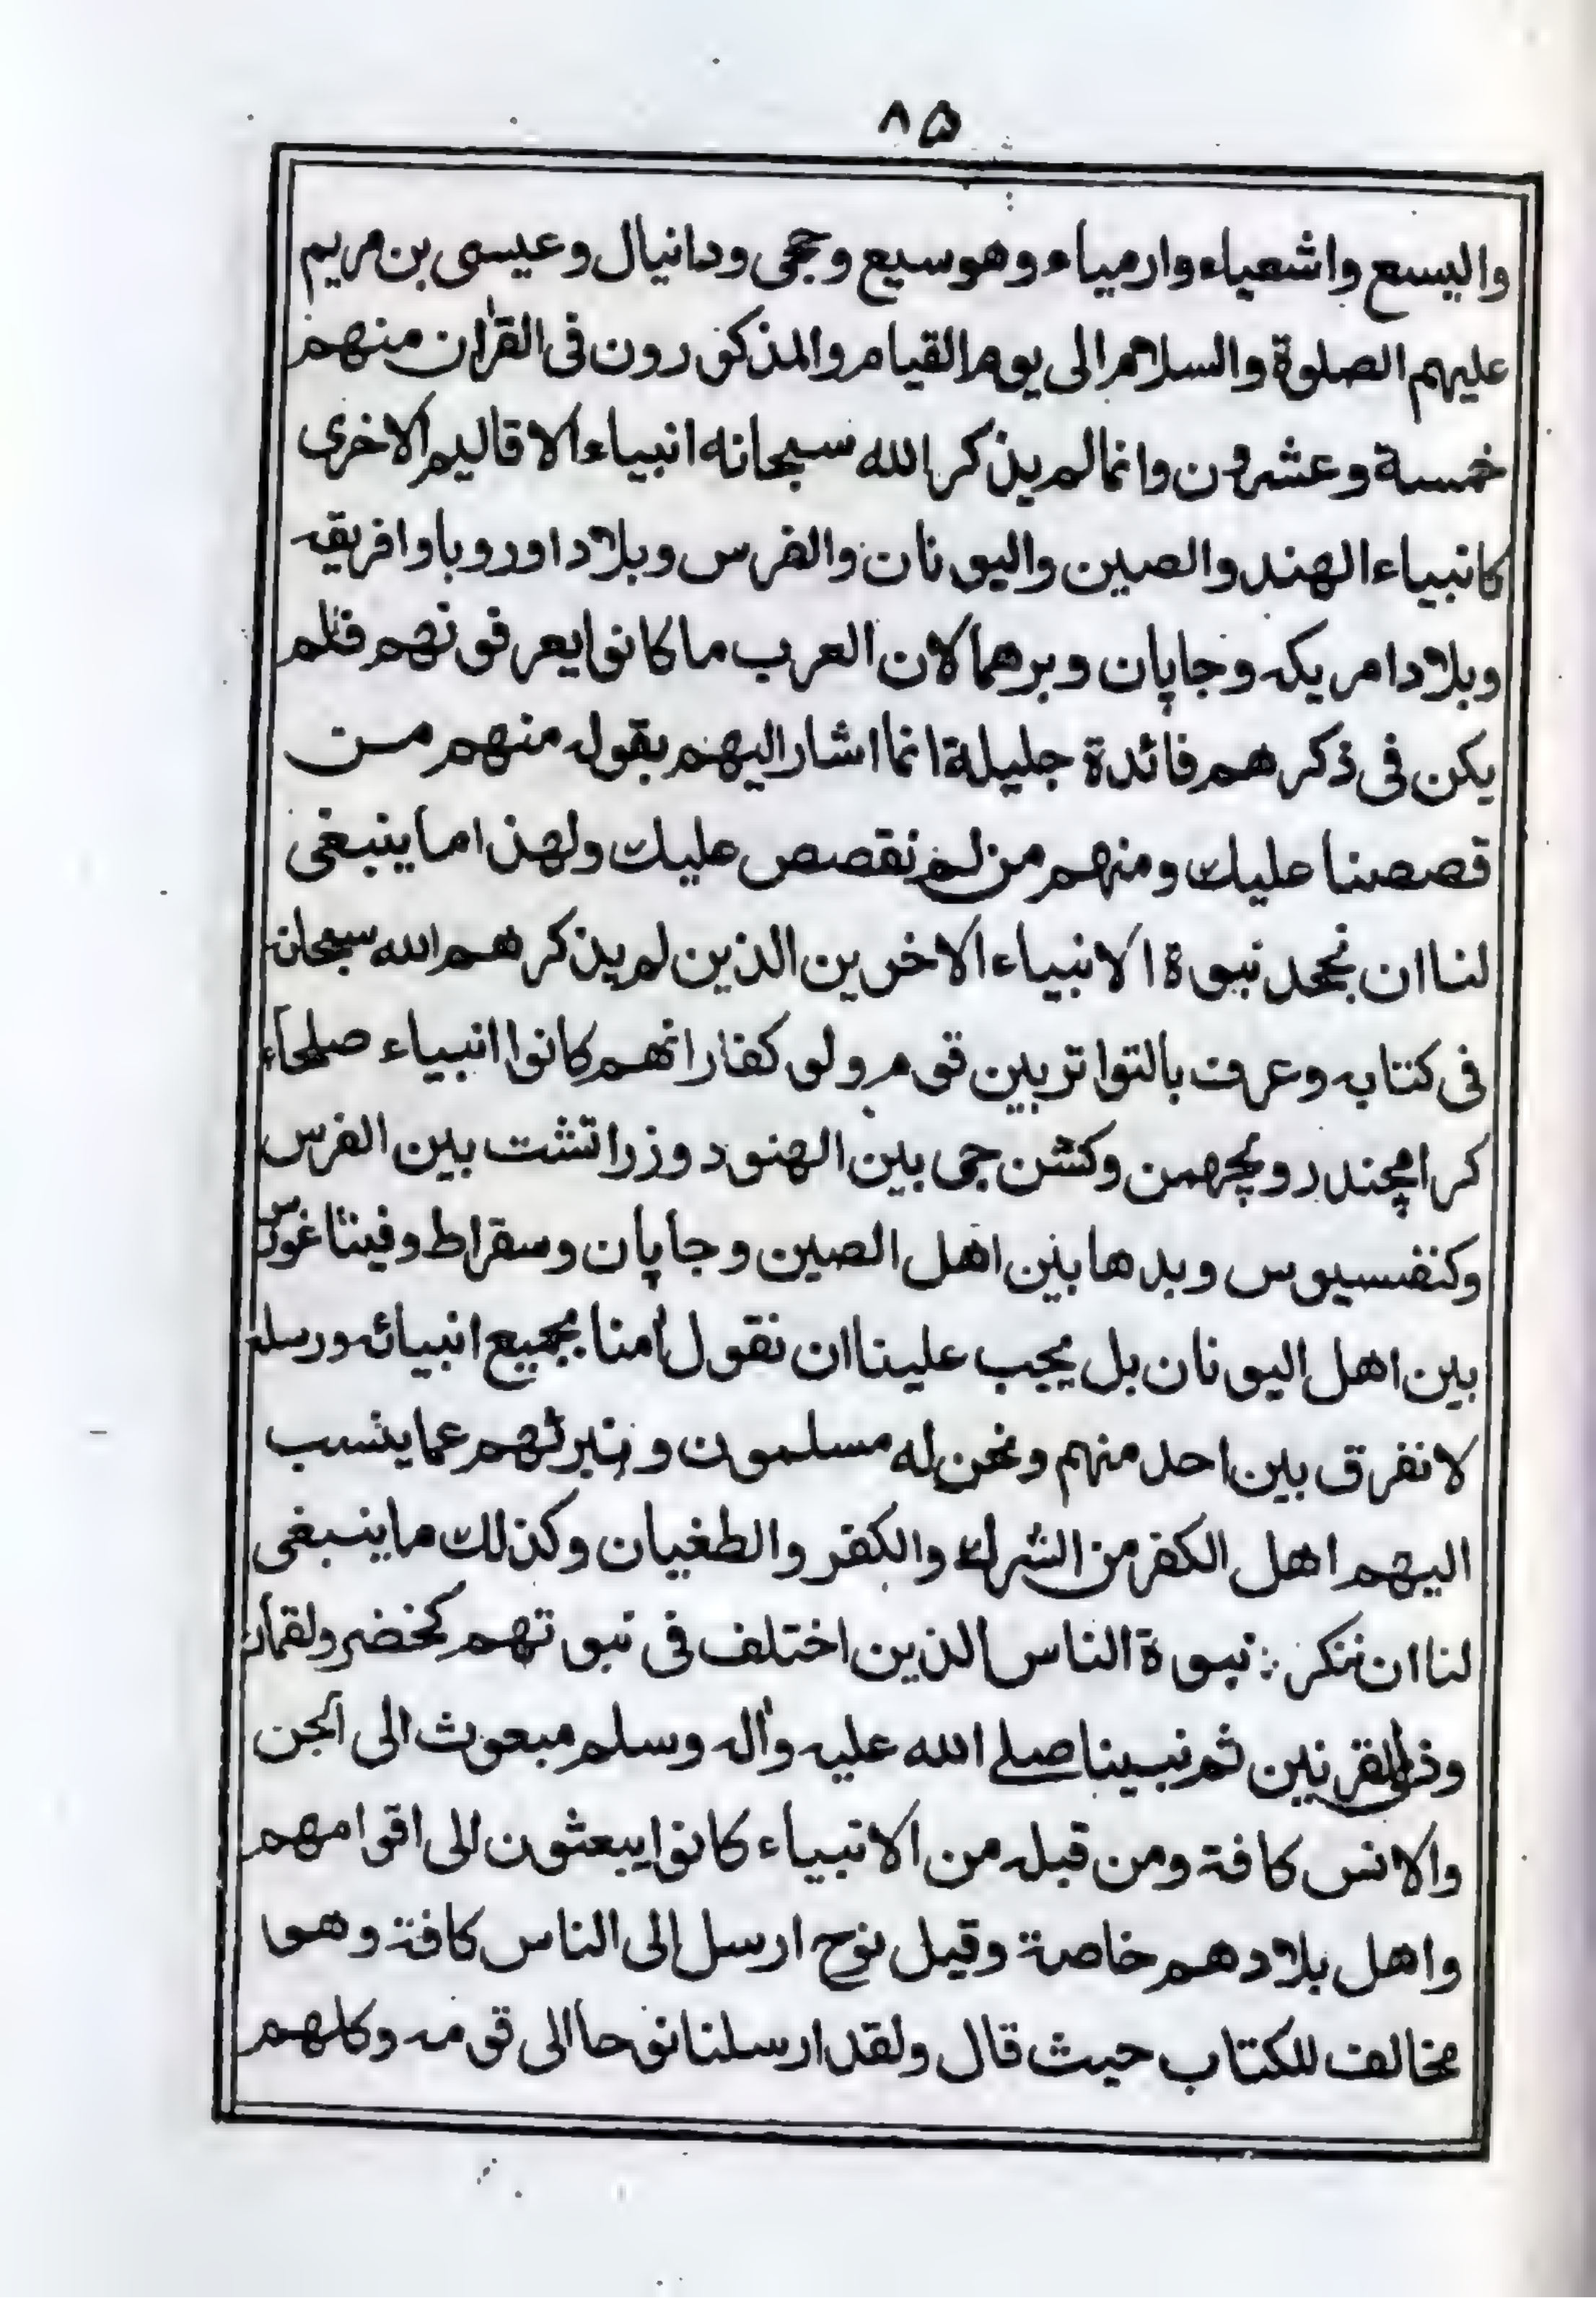 ٨٥
واليسع واشعياء وارمياء وهوسيع وحجى ودانيال وعيسى بن مريم
عليهم الصلوة والسلام الى يوم القيام والمذكورون فى القرٰان منهم
خمسة وعشرون وانما لم يذكر الله سبحانه انبياء الاقاليم الاخرى
كانبياء الهند والصين واليونان والفرس وبلاد اوروبا وافريقه
وبلاد امريكه وجاپان وبرهما لان العرب ما كانوا يعرفونهم فلم
يكن فى ذكرهم فائدة جليلة انما اشار اليهم بقوله منهم من
قصصنا عليك ومنهم من لم نقصص عليك ولهذا ما ينبغى
لنا ان نجحد نبوة الانبياء الاخرين الذين لم يذكرهم الله سبحانه
فى كتابه وعرف بالتواتر بين قوم ولو كفارا انهم كانوا انبياء صلحاء
كرامچندر ولچهمن وكشن جى بين الهنود وزراتشت بين الفرس
وكنفسيوس وبدها بين اهل الصين وجاپان وسقراط وفيثاغورس
بين اهل اليونان بل يجب علينا ان نقول اٰمنا بجميع انبيائه ورسله
لا نفرق بين احد منهم ونحن له مسلمون ونبرئهم عما ينسب
اليهم اهل الكفر من الشرك والكفر والطغيان وكذلك ما ينبغى
لنا ان ننكر نبوة الناس الذين اختلف فى نبوتهم كخضر ولقمان
وذى القرنين ثم نبينا صلے الله عليه واٰله وسلم مبعوث الى الجن
والانس كافة ومن قبله من الانبياء كانوا يبعثون الى اقوامهم
واهل بلادهم خاصة وقيل نوح ارسل الى الناس كافة وهو
مخالف للكتاب حيث قال ولقد ارسلنا نوحا الى قومه وكلهم